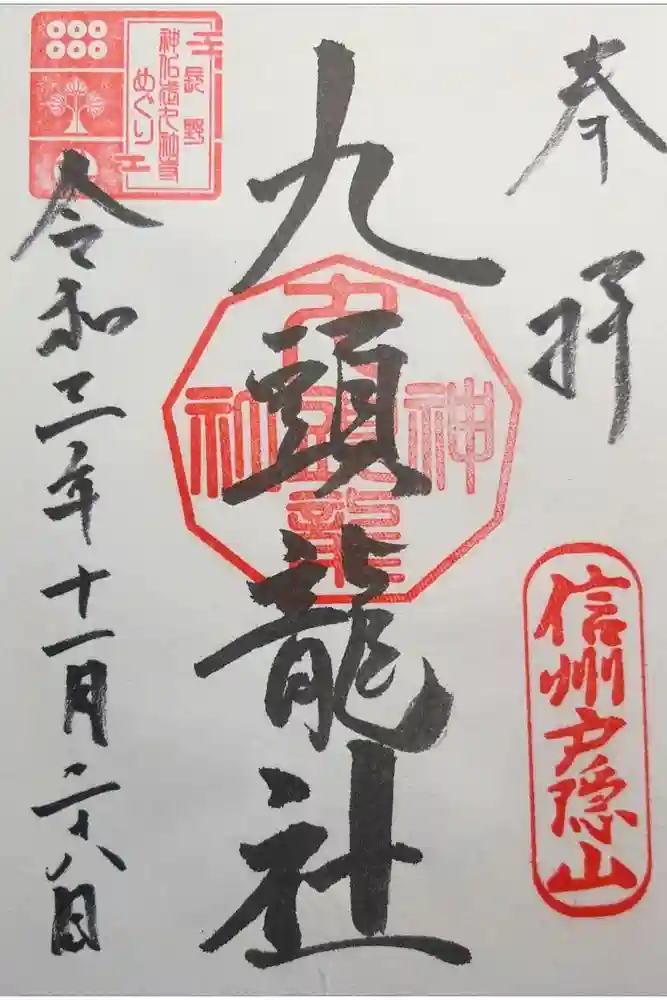 奉拝
信州戸隠山
九頭龍社
九頭龍神社
長野
神仏
めぐり
令和三年十一月二十八日